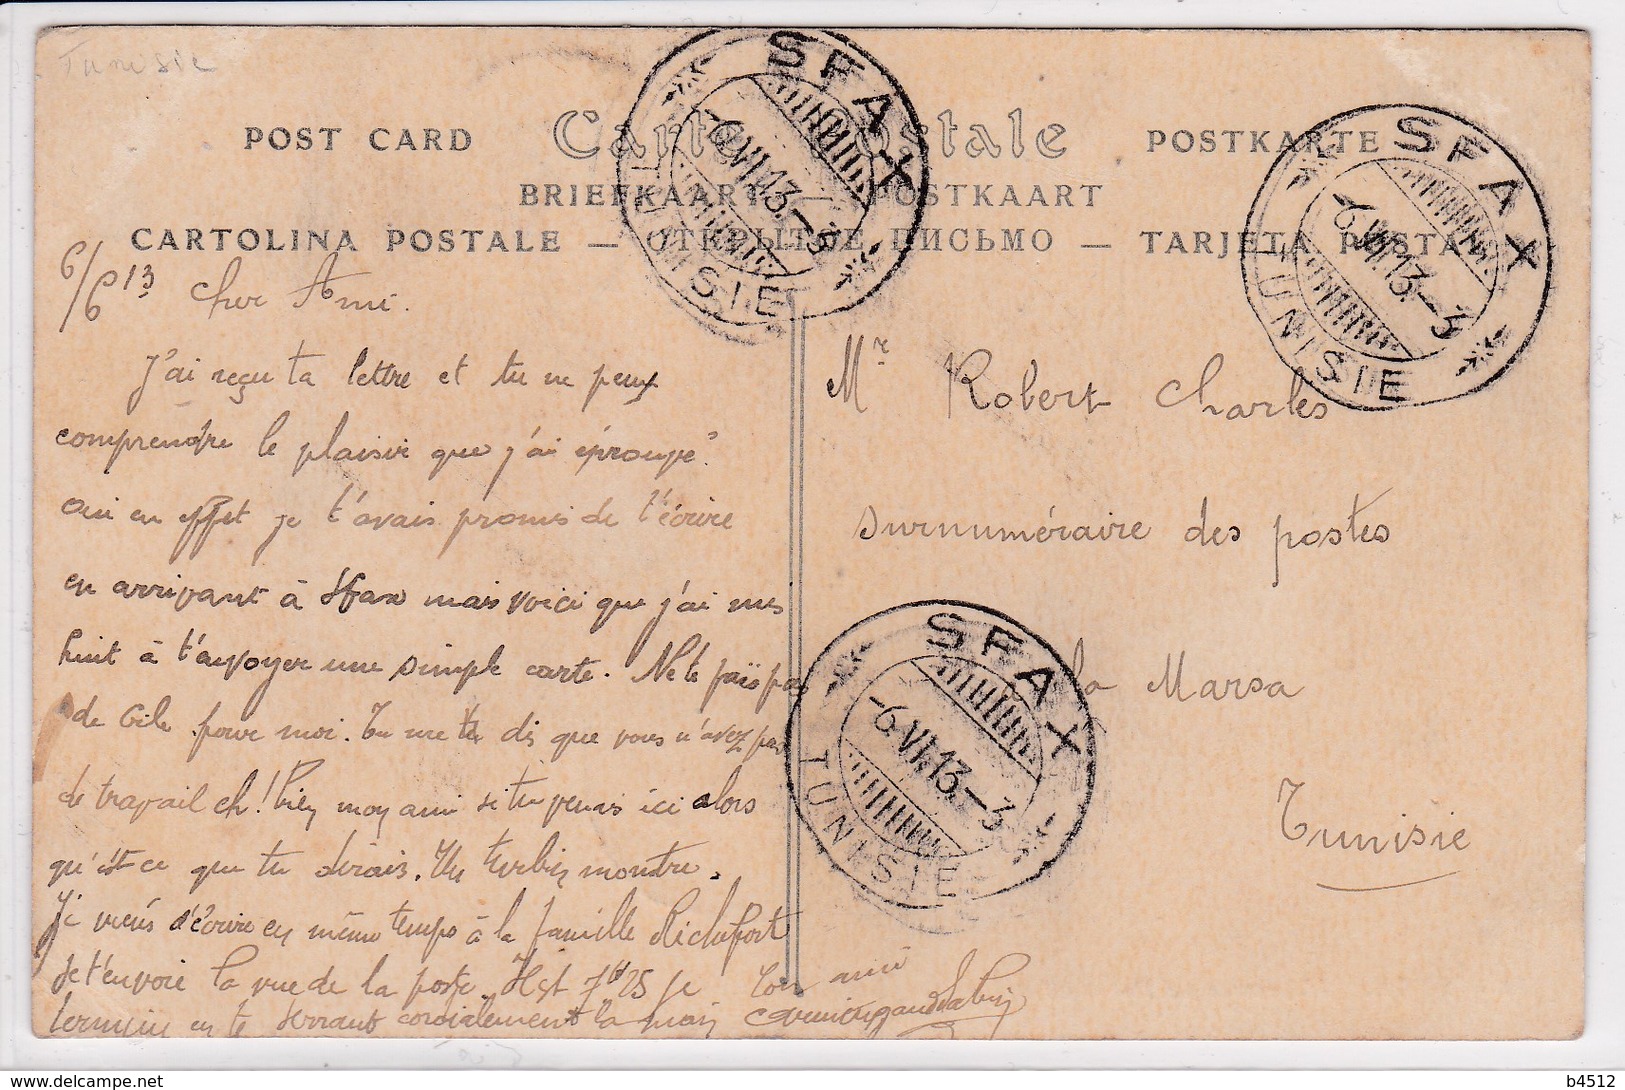 Tunisie
POST CARD Carte Postale POSTKARTE
BRIEFKAART — POSTKAART
CARTOLINA POSTALE — ОТКРЫТОЕ ПИСЬМО — TARJETA POSTAL
SFAX
-6.VI.13.-3
TUNISIE
SFAX
-6.VI.13.-3
TUNISIE
6/6 13 Cher Ami.
J'ai reçu ta lettre et tu ne peux
comprendre le plaisir que j'ai éprouvé.
Oui en effet je t'avais promis de t'écrire
en arrivant à Sfax mais voici que j'ai mis
huit à t'envoyer une simple carte. Ne te fais pas
de bile pour moi. Tu me dis que vous n'avez pas
de travail eh! bien mon ami si tu venais ici alors
qu'est-ce que tu dirais. Un turbin monstre.
Je viens d'écrire en même temps à la famille Richefort
Je t'envoie la vue de la poste. Il est 7h25 je
termine en te serrant cordialement la main
Ton ami
Mr Robert Charles
surnuméraire des postes
La Marsa
Tunisie
SFAX
-6.VI.13.-3
TUNISIE
delcampe.net
b4512